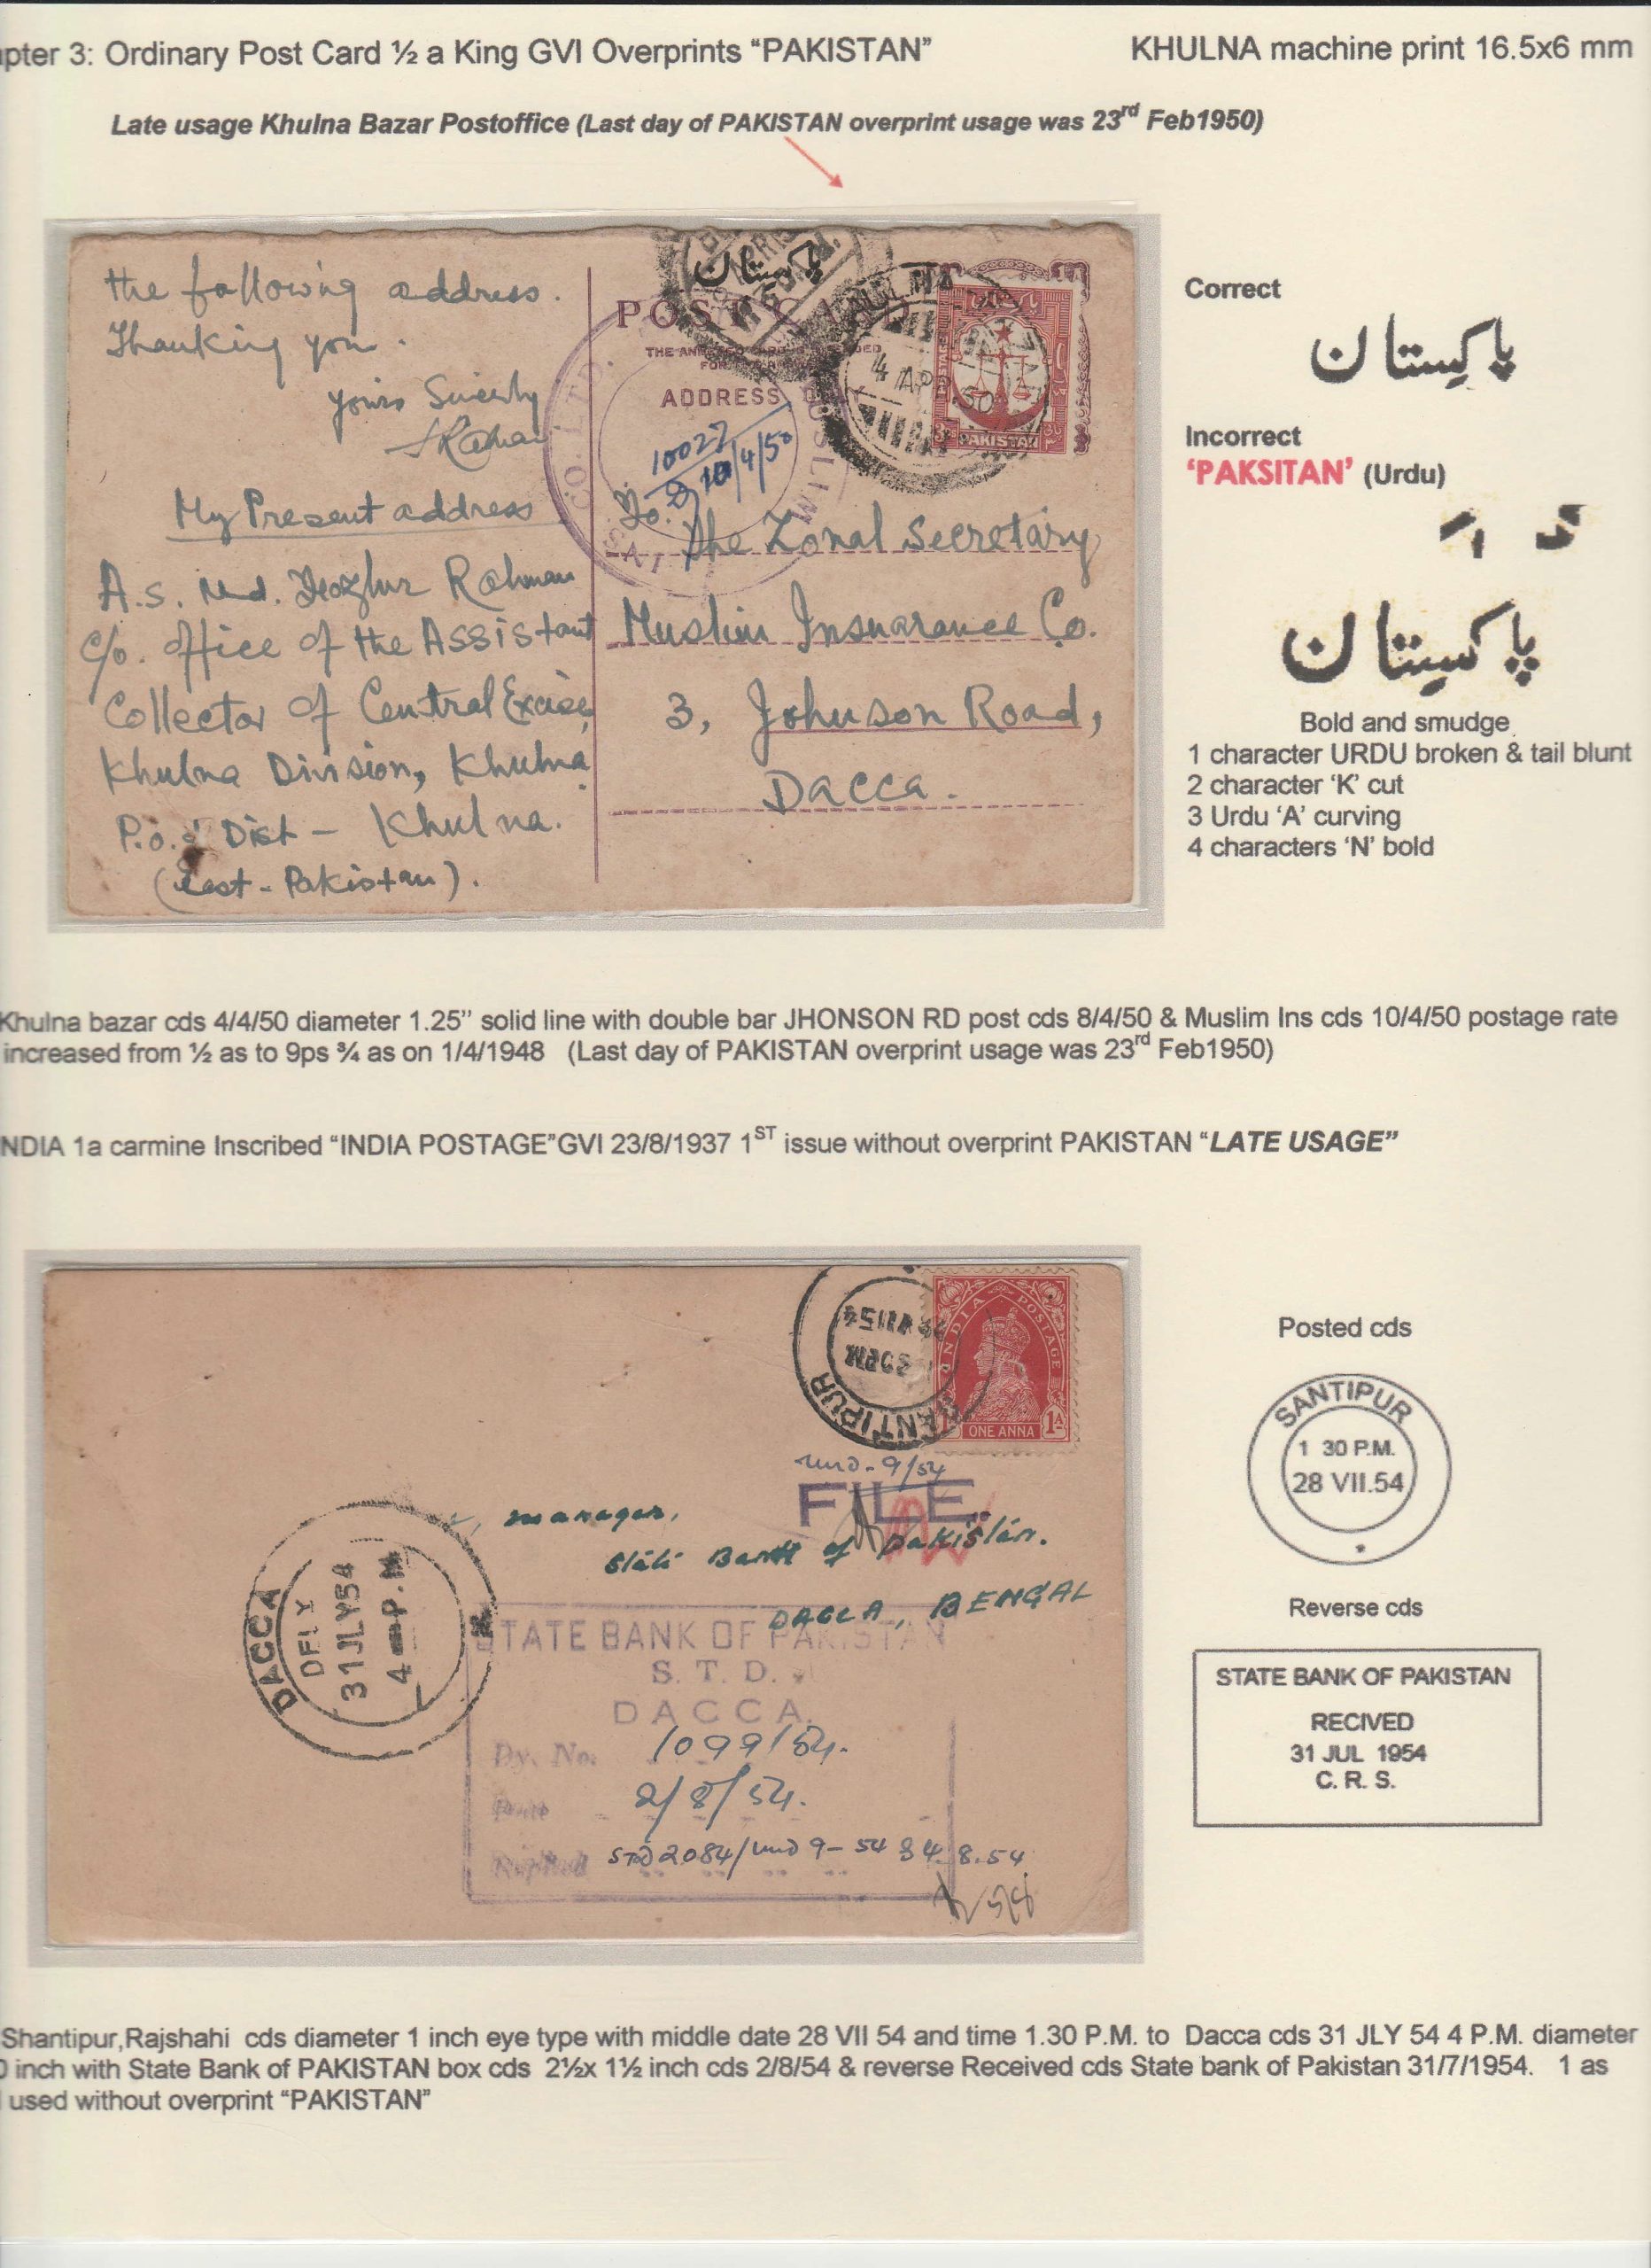 pter 3: Ordinary Post Card ½ a King GVI Overprints “PAKISTAN”
KHULNA machine print 16.5x6 mm
Late usage Khulna Bazar Postoffice (Last day of PAKISTAN overprint usage was 23rd Feb1950)
the following address.
Thanking you.
yours Sincerly
My Present address
A.S. Md. Rahman
c/o. office of the Assistant
Collector of Central Excise,
Khulna Division, Khulna
P.O. & Dist - Khulna.
(East-Pakistan).
پاکستان
POST CARD
ADDRESS
CO. LTD.
MUSLIM
4 APR 50
PAKISTAN
10027
10/4/50
To.
The Zonal Secretary
Muslim Insuarance Co.
3, Johnson Road,
Dacca.
Correct
پاکستان
Incorrect
‘PAKSITAN’ (Urdu)
پاکستان
Bold and smudge
1 character URDU broken & tail blunt
2 character ‘K’ cut
3 Urdu ‘A’ curving
4 characters ‘N’ bold
Khulna bazar cds 4/4/50 diameter 1.25” solid line with double bar JHONSON RD post cds 8/4/50 & Muslim Ins cds 10/4/50 postage rate
increased from ½ as to 9ps ¾ as on 1/4/1948 (Last day of PAKISTAN overprint usage was 23rd Feb1950)
NDIA 1a carmine Inscribed “INDIA POSTAGE”GVI 23/8/1937 1ST issue without overprint PAKISTAN “LATE USAGE”
SANTIPUR
INDIA POSTAGE
ONE ANNA 1A
9/54
FILE
manager,
State Bank of Pakistan.
DACCA, BENGAL
DACCA
DELY
31JLY54
4-P.M
STATE BANK OF PAKISTAN
S. T. D.
DACCA.
Dy. No. 1099/54.
Date 2/8/54.
Replied STD 2084/ 9-54 8.54
Posted cds
SANTIPUR
1 30 P.M.
28 VII.54
Reverse cds
STATE BANK OF PAKISTAN
RECIVED
31 JUL 1954
C. R. S.
Shantipur,Rajshahi cds diameter 1 inch eye type with middle date 28 VII 54 and time 1.30 P.M. to Dacca cds 31 JLY 54 4 P.M. diameter
inch with State Bank of PAKISTAN box cds 2½x 1½ inch cds 2/8/54 & reverse Received cds State bank of Pakistan 31/7/1954. 1 as
used without overprint “PAKISTAN”